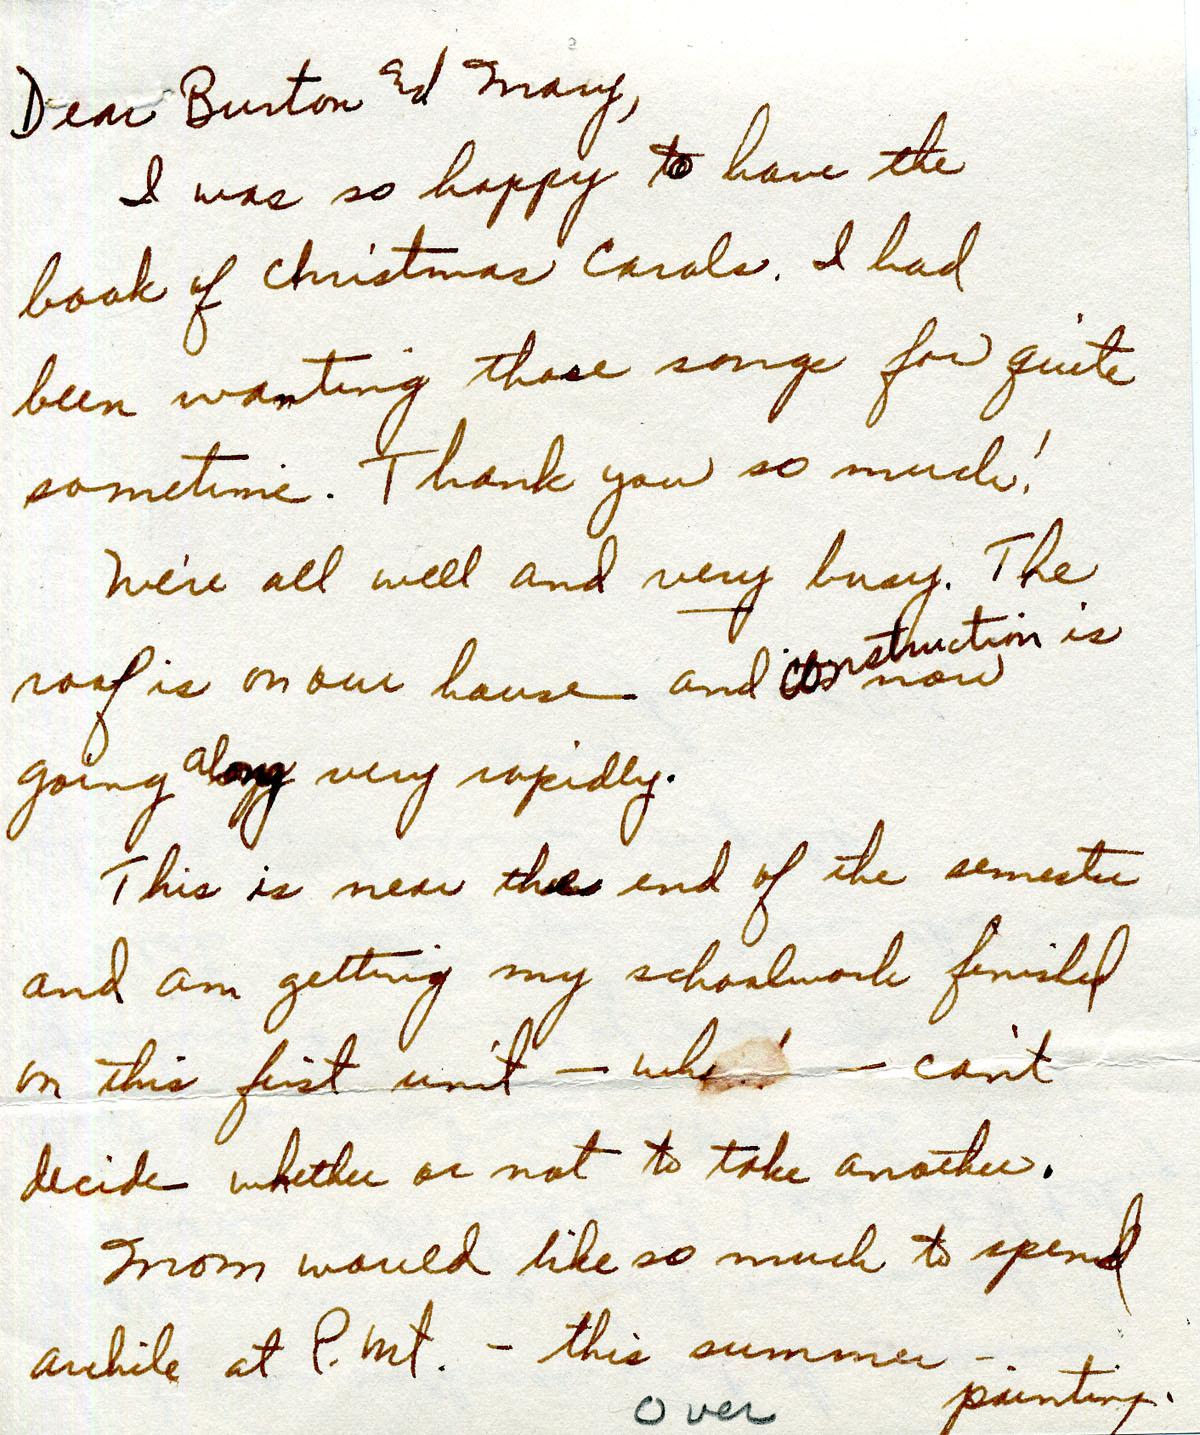 Dear Burton Ed Mary,
I was so happy to have the
book of Christmas Carols. I had
been wanting those songs for quite
sometime. Thank you so much!
We're all well and very busy. The
roof is on our house and construction is now
going along very rapidly.
This is near the end of the semester
and am getting my schoolwork finished
on this first unit – – can't
decide whether or not to take another.
Mom would like so much to spend
awhile at P. Mt. – this summer –
painting.
Over